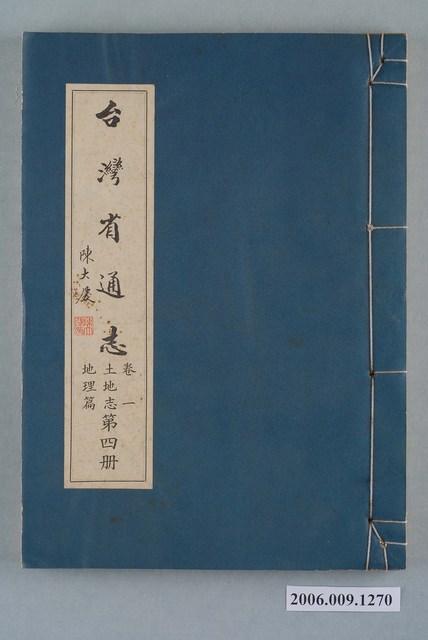 台灣省通志
陳大慶
卷一
土地志
地理篇
第四册
2006.009.1270